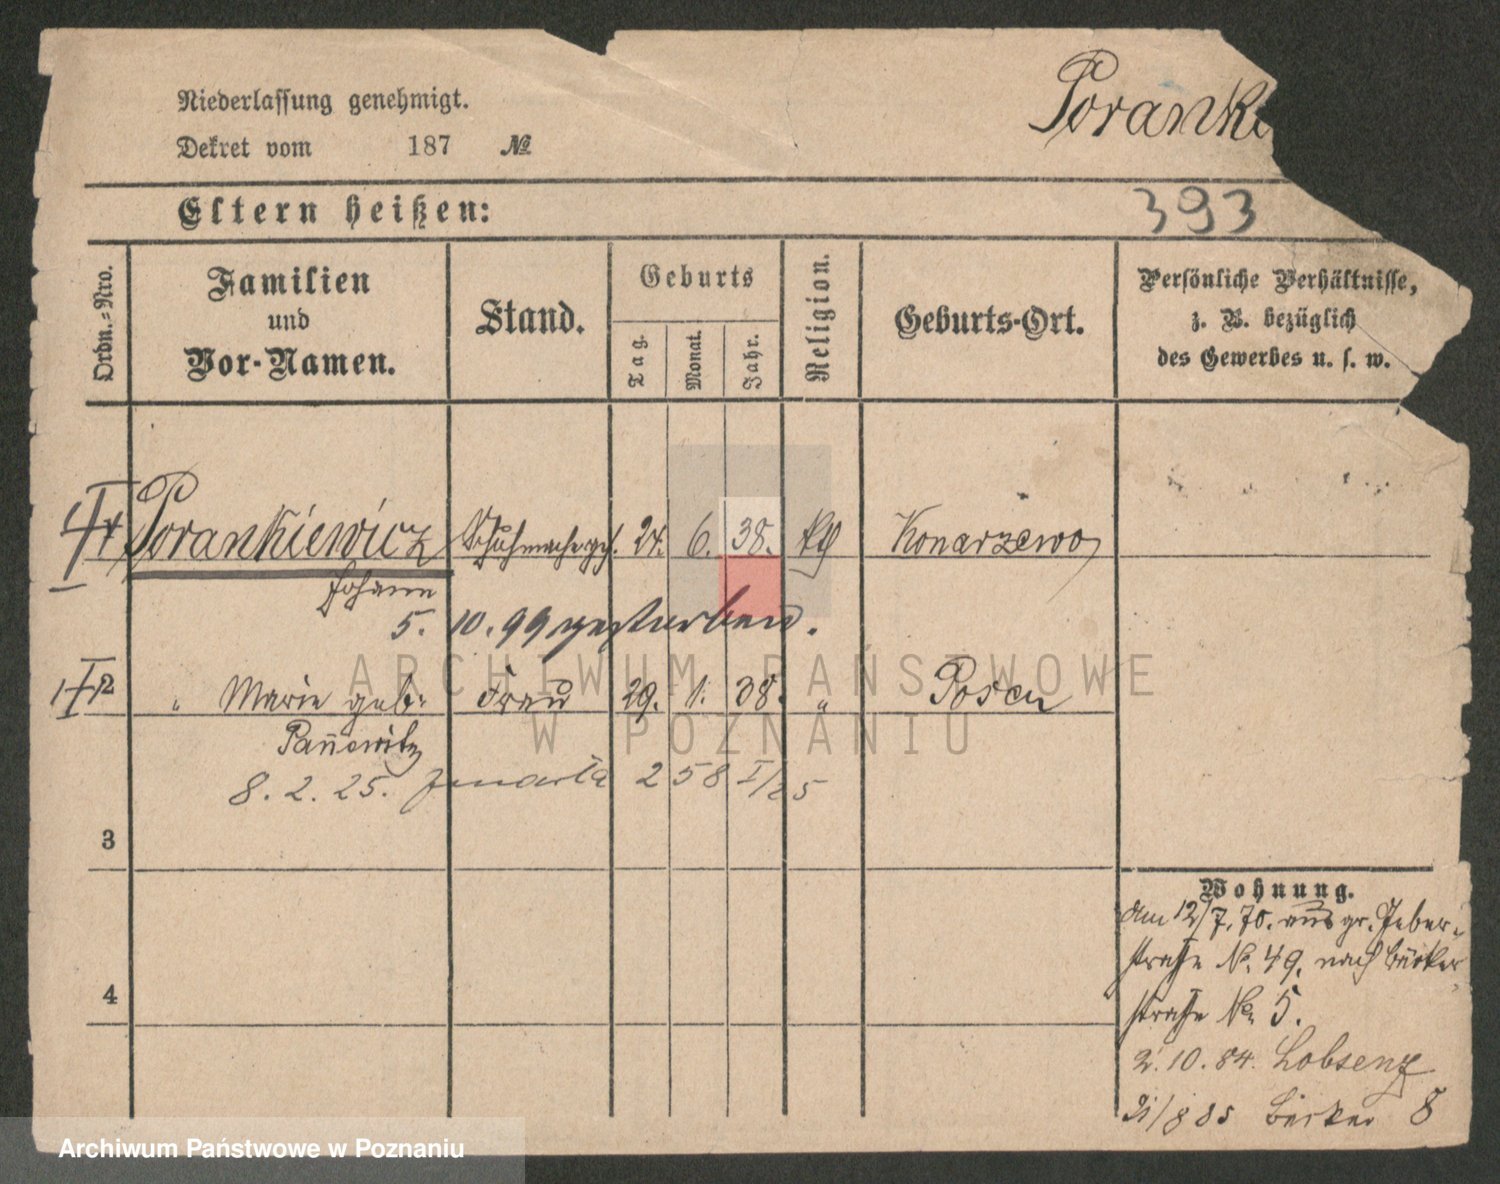 Niederlassung genehmigt.
Dekret vom 187 №
Poranki
393
Eltern heißen:
Ordn.-Nro.
Familien und Vor-Namen.
Stand.
Geburts
Tag.
Monat.
Jahr.
Religion.
Geburts-Ort.
Persönliche Verhältnisse,
z. B. bezüglich
des Gewerbes u. s. w.
Porankiewicz Schuhmacherges. 24. 6. 38. Konarzewo
Johann
5. 10. 99 gestorben.
2 " Marie geb: Frau 29. 1. 38. " Posen
Pannewitz
8. 2. 25. zmarła 258 I/25
3
4
Wohnung.
Am 12/7. 70. aus gr. Gerber-
straße No. 49. nach Bäcker
straße No. 5.
2. 10. 84. Lobsenz
21/8 85 Bäcker 8
ARCHIWUM PAŃSTWOWE
W POZNANIU
Archiwum Państwowe w Poznaniu